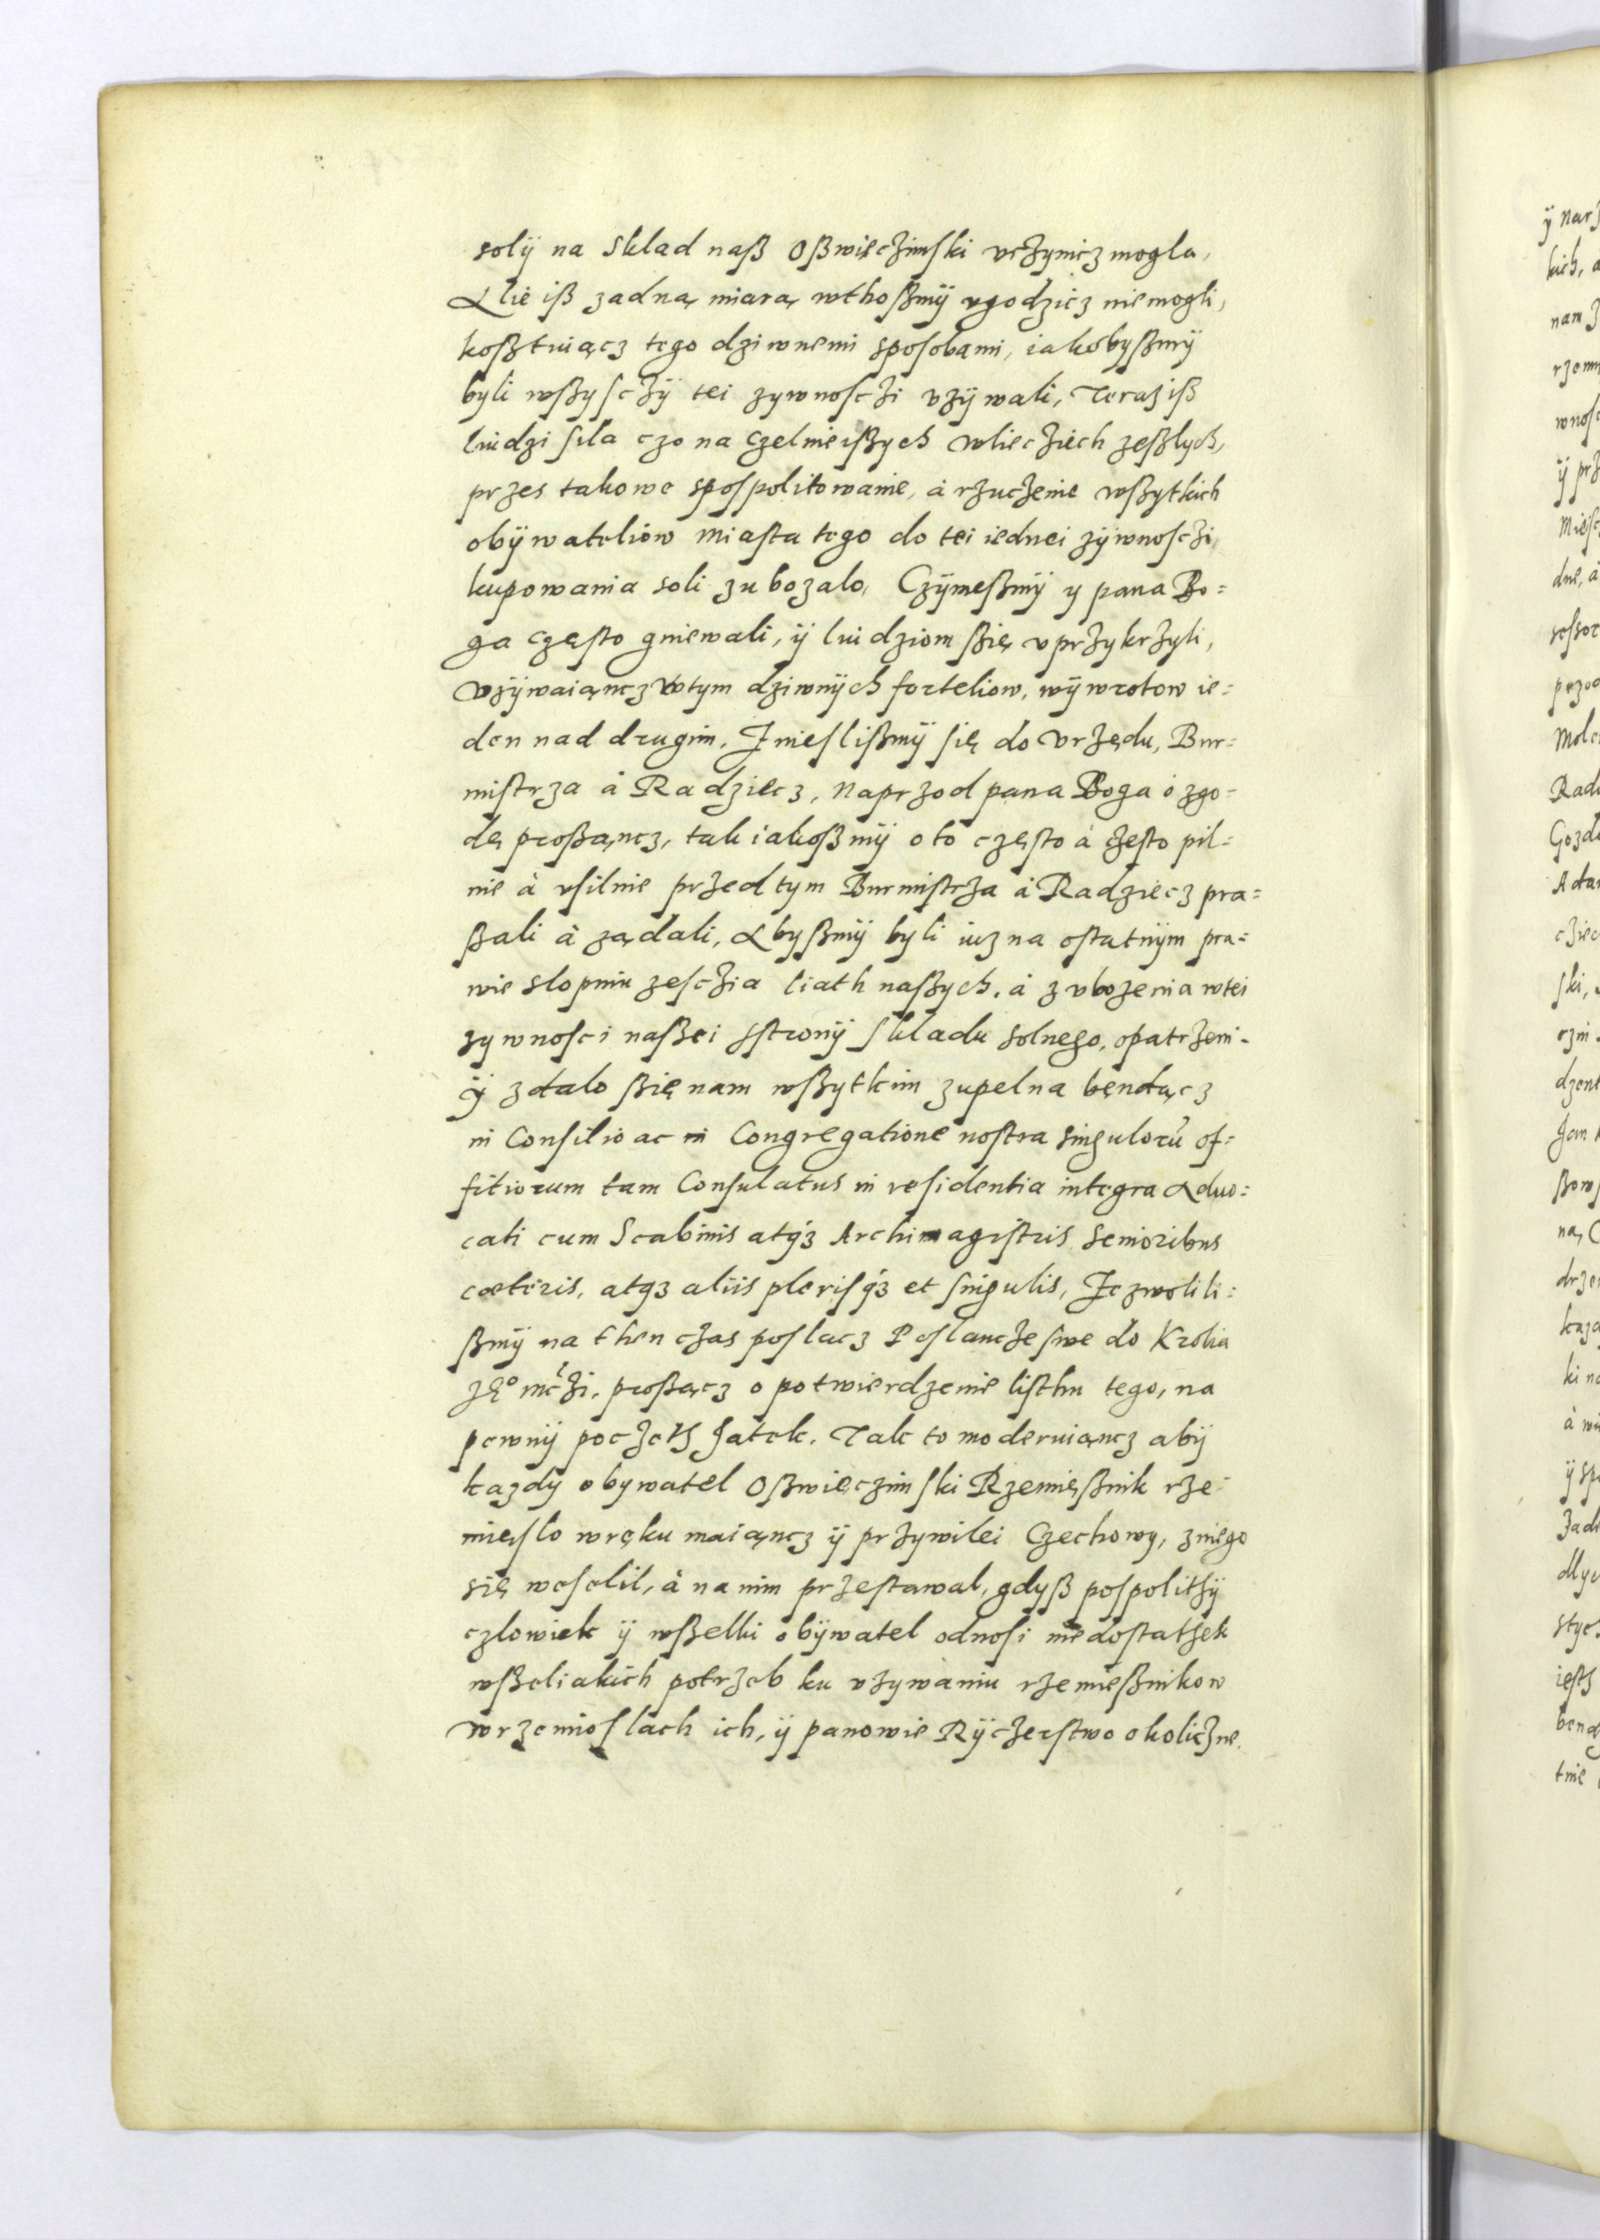 solÿ na Sklad naß Oßwięcżimski vcżynicz mogla,
Alie iß zadną miarą wthoßmÿ vgodzicz niemogli,
kosztuiącz tego dziwnemi sposobami, iakobyßmÿ
byli wßyscżÿ tei zywnoscżi vzÿwali, Teraz iß
liudzi siła czo naczelnieißych wliecżiech zeßlych,
przes takowe spospolitowanie, à rżucżenie wßytkich
obÿwateliow miasta tego do tei iednei zÿwnoscżi,
kupowania soli zubozalo, Czÿmeßmÿ y pana Bo=
ga często gniewali, ÿ liudziom ßię vprżykrżyli,
Vzÿwaiąncz wtym dziwnÿch forteliow, wÿwrotow ie=
den nad drugim. Znieslißmÿ się do Vrżędu, Bur=
mistrza à Radziecz, Naprżod pana Boga o zgo=
dę proßąncz, tak iakoßmÿ o to często à często pil=
nie à vsilnie prżedtym Burmistrża à Radziecz pra=
ßali à ządali, Abyßmÿ byli iuz na ostatnÿm pra=
wie slopniu zescżia liath naßych, à zubozenia wtei
zywnosci naßei sstronÿ Skladu solnego, opatrżeni.
Ÿ zdalo ßię nam wßytkim zupelna bendącz
in Consilio ac in Congregatione nostra singuloru of=
fitiorum tam Consulatus in residentia integra Aduo=
cati cum Scabinis atqz Archimagistris Senioribus
cæteris, atqz aliis plerisqz et singulis, Zezwolili=
ßmÿ na then cżas poslacz Poslancże swe do Krolia
Je° mczi, proßącz o potwierdzenie listhu tego, na
pewnÿ pocżeth Jatek. Tak to moderuiąncz abÿ
kazdy obywatel Oßwięczimski Rzemięßnik rże=
mięslo wręku maiąncz ÿ prżywilei Czechowy, zniego
się weselil, à na nim przestawal, gdyß pospolithÿ
czlowiek ÿ wßelki obÿwatel odnosi niedostathek
wßeliakich potrżeb ku vżywaniu rżemießnikow
wrzemioslach ich, ÿ panowie Rÿcżerstwo okolicżne.